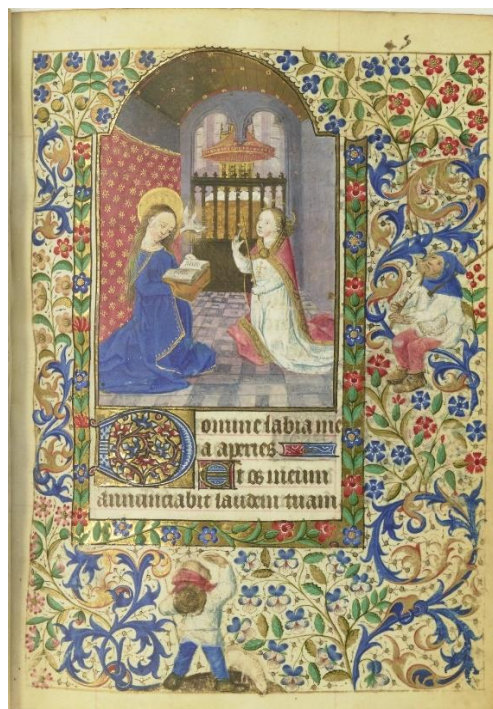 45
Domine labia me
a aperies
Et os meum
annunciabit laudem tuam